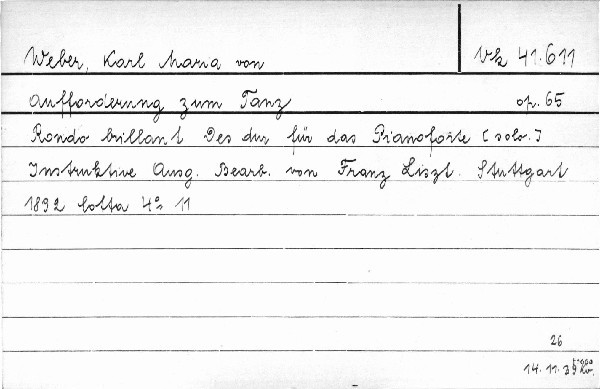 Weber, Karl Maria von
Vk 41.611
Aufforderung zum Tanz op. 65
Rondo brillant Des dur für das Pianoforte (solo.)
Instruktive Ausg. Bearb. von Franz Liszt. Stuttgart
1892 Cotta 4° 11
26
14.11.39